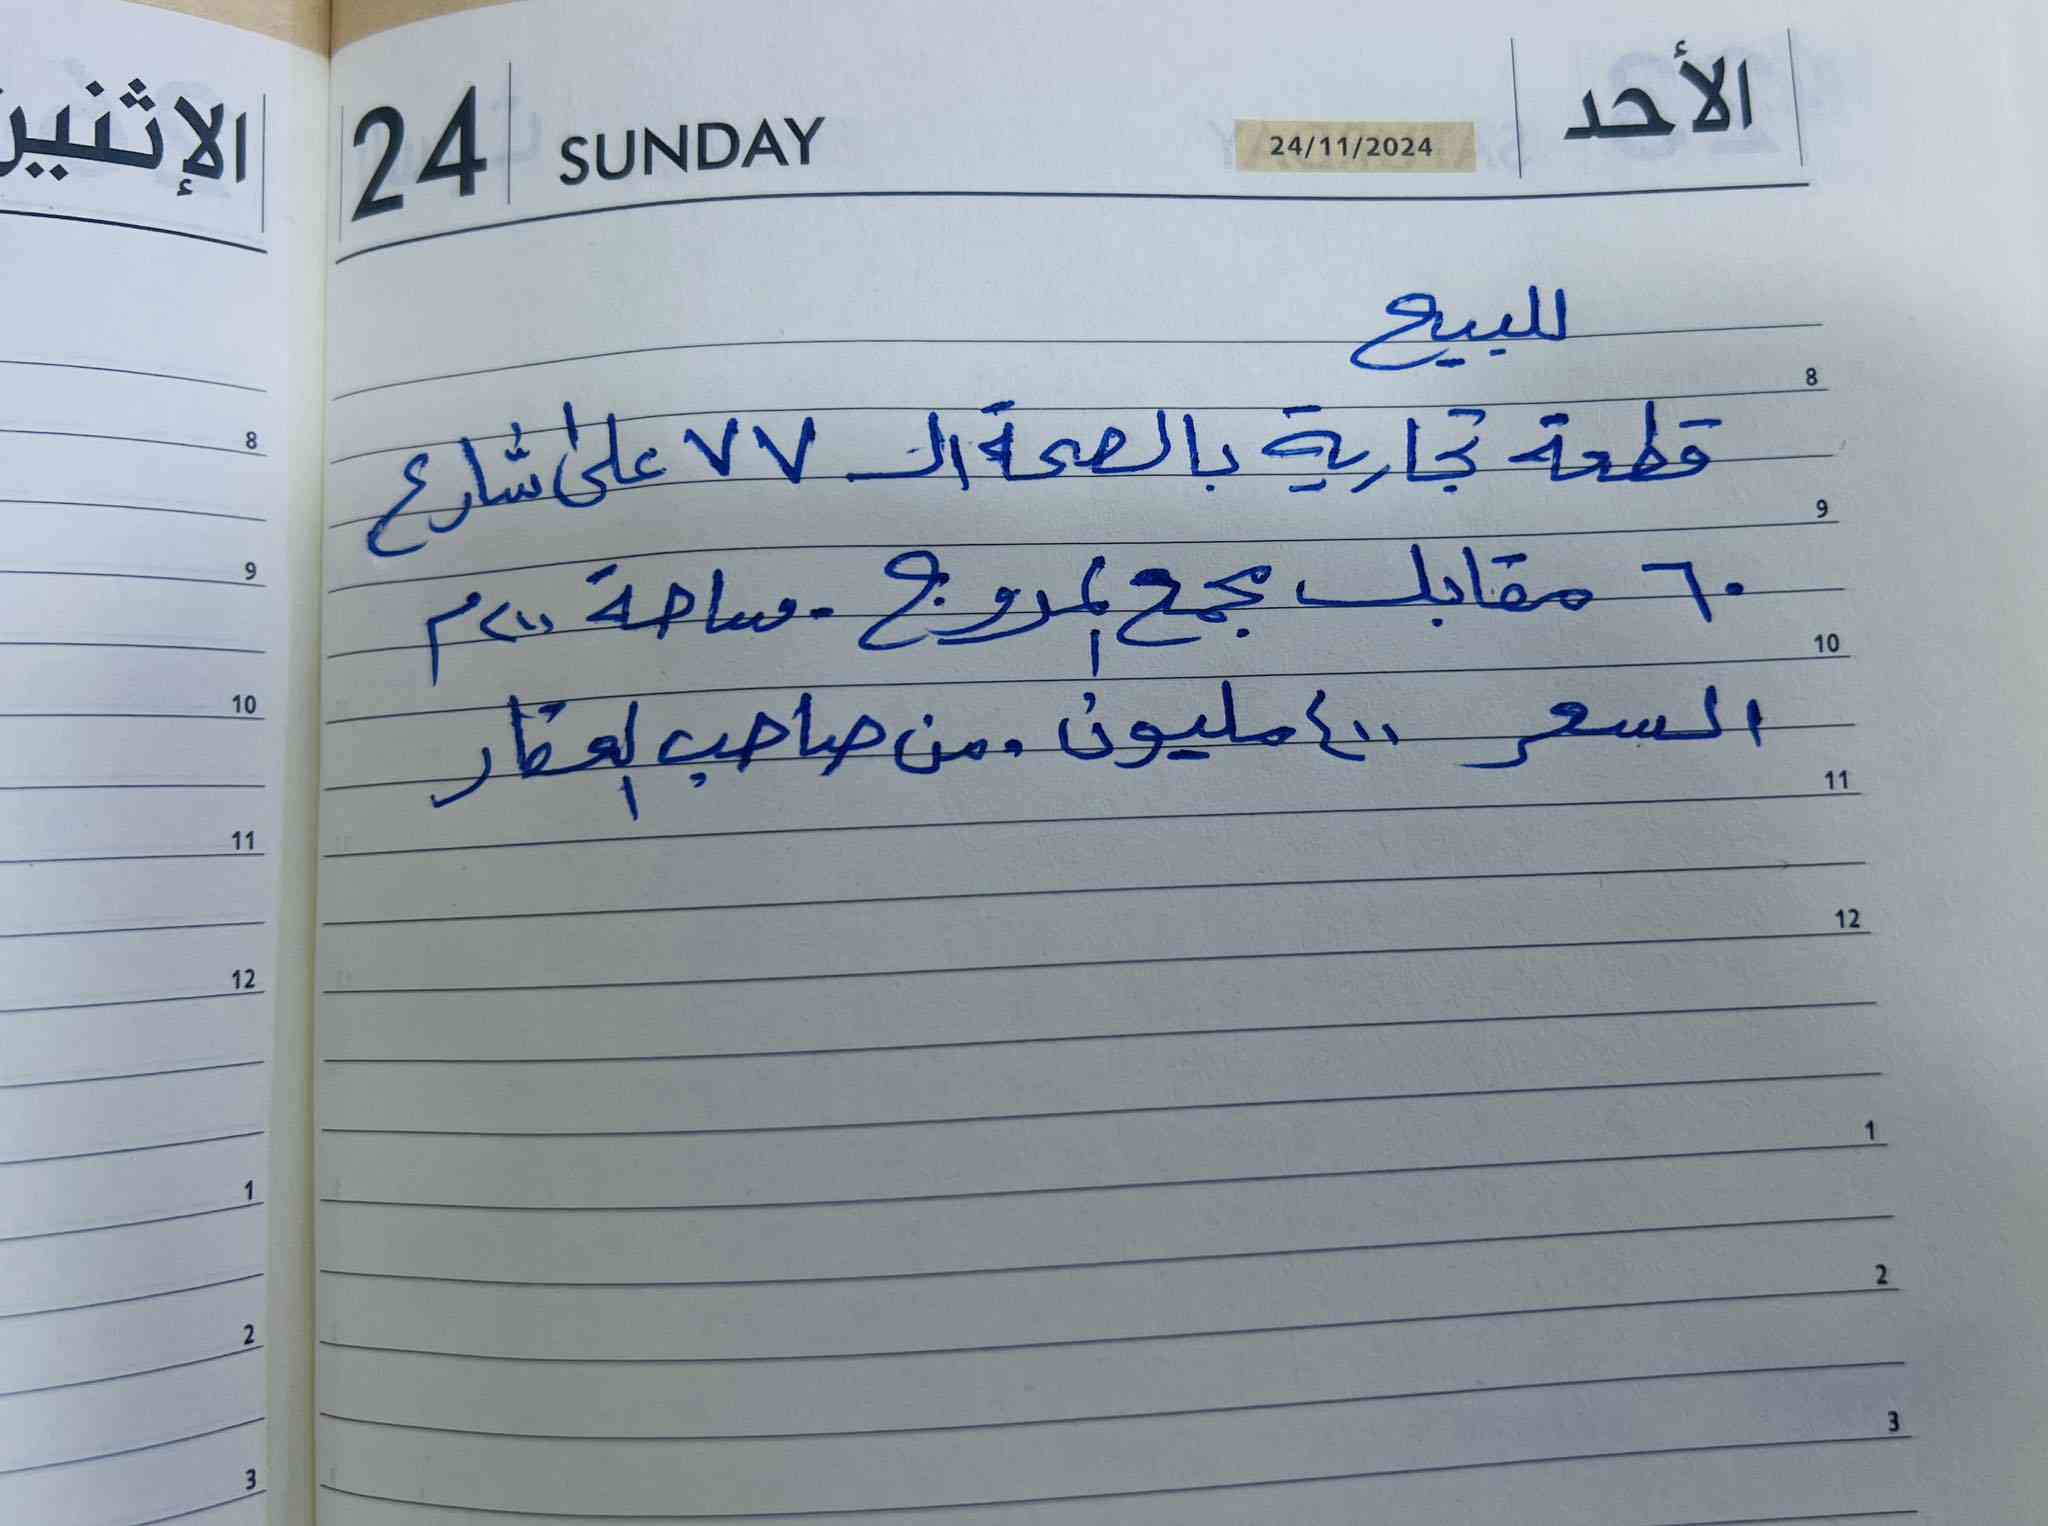 الإثنين
24 SUNDAY 24/11/2024 الأحد
للبيع
قطعة تجارية بالصحة الـ ٧٧ على شارع
٦٠ مقابل مجمع المروج . مساحة ٢٠٠م
السعر ٤٠٠ مليون . من صاحب العقار
8
9
10
11
12
1
2
3
8
9
10
11
12
1
2
3